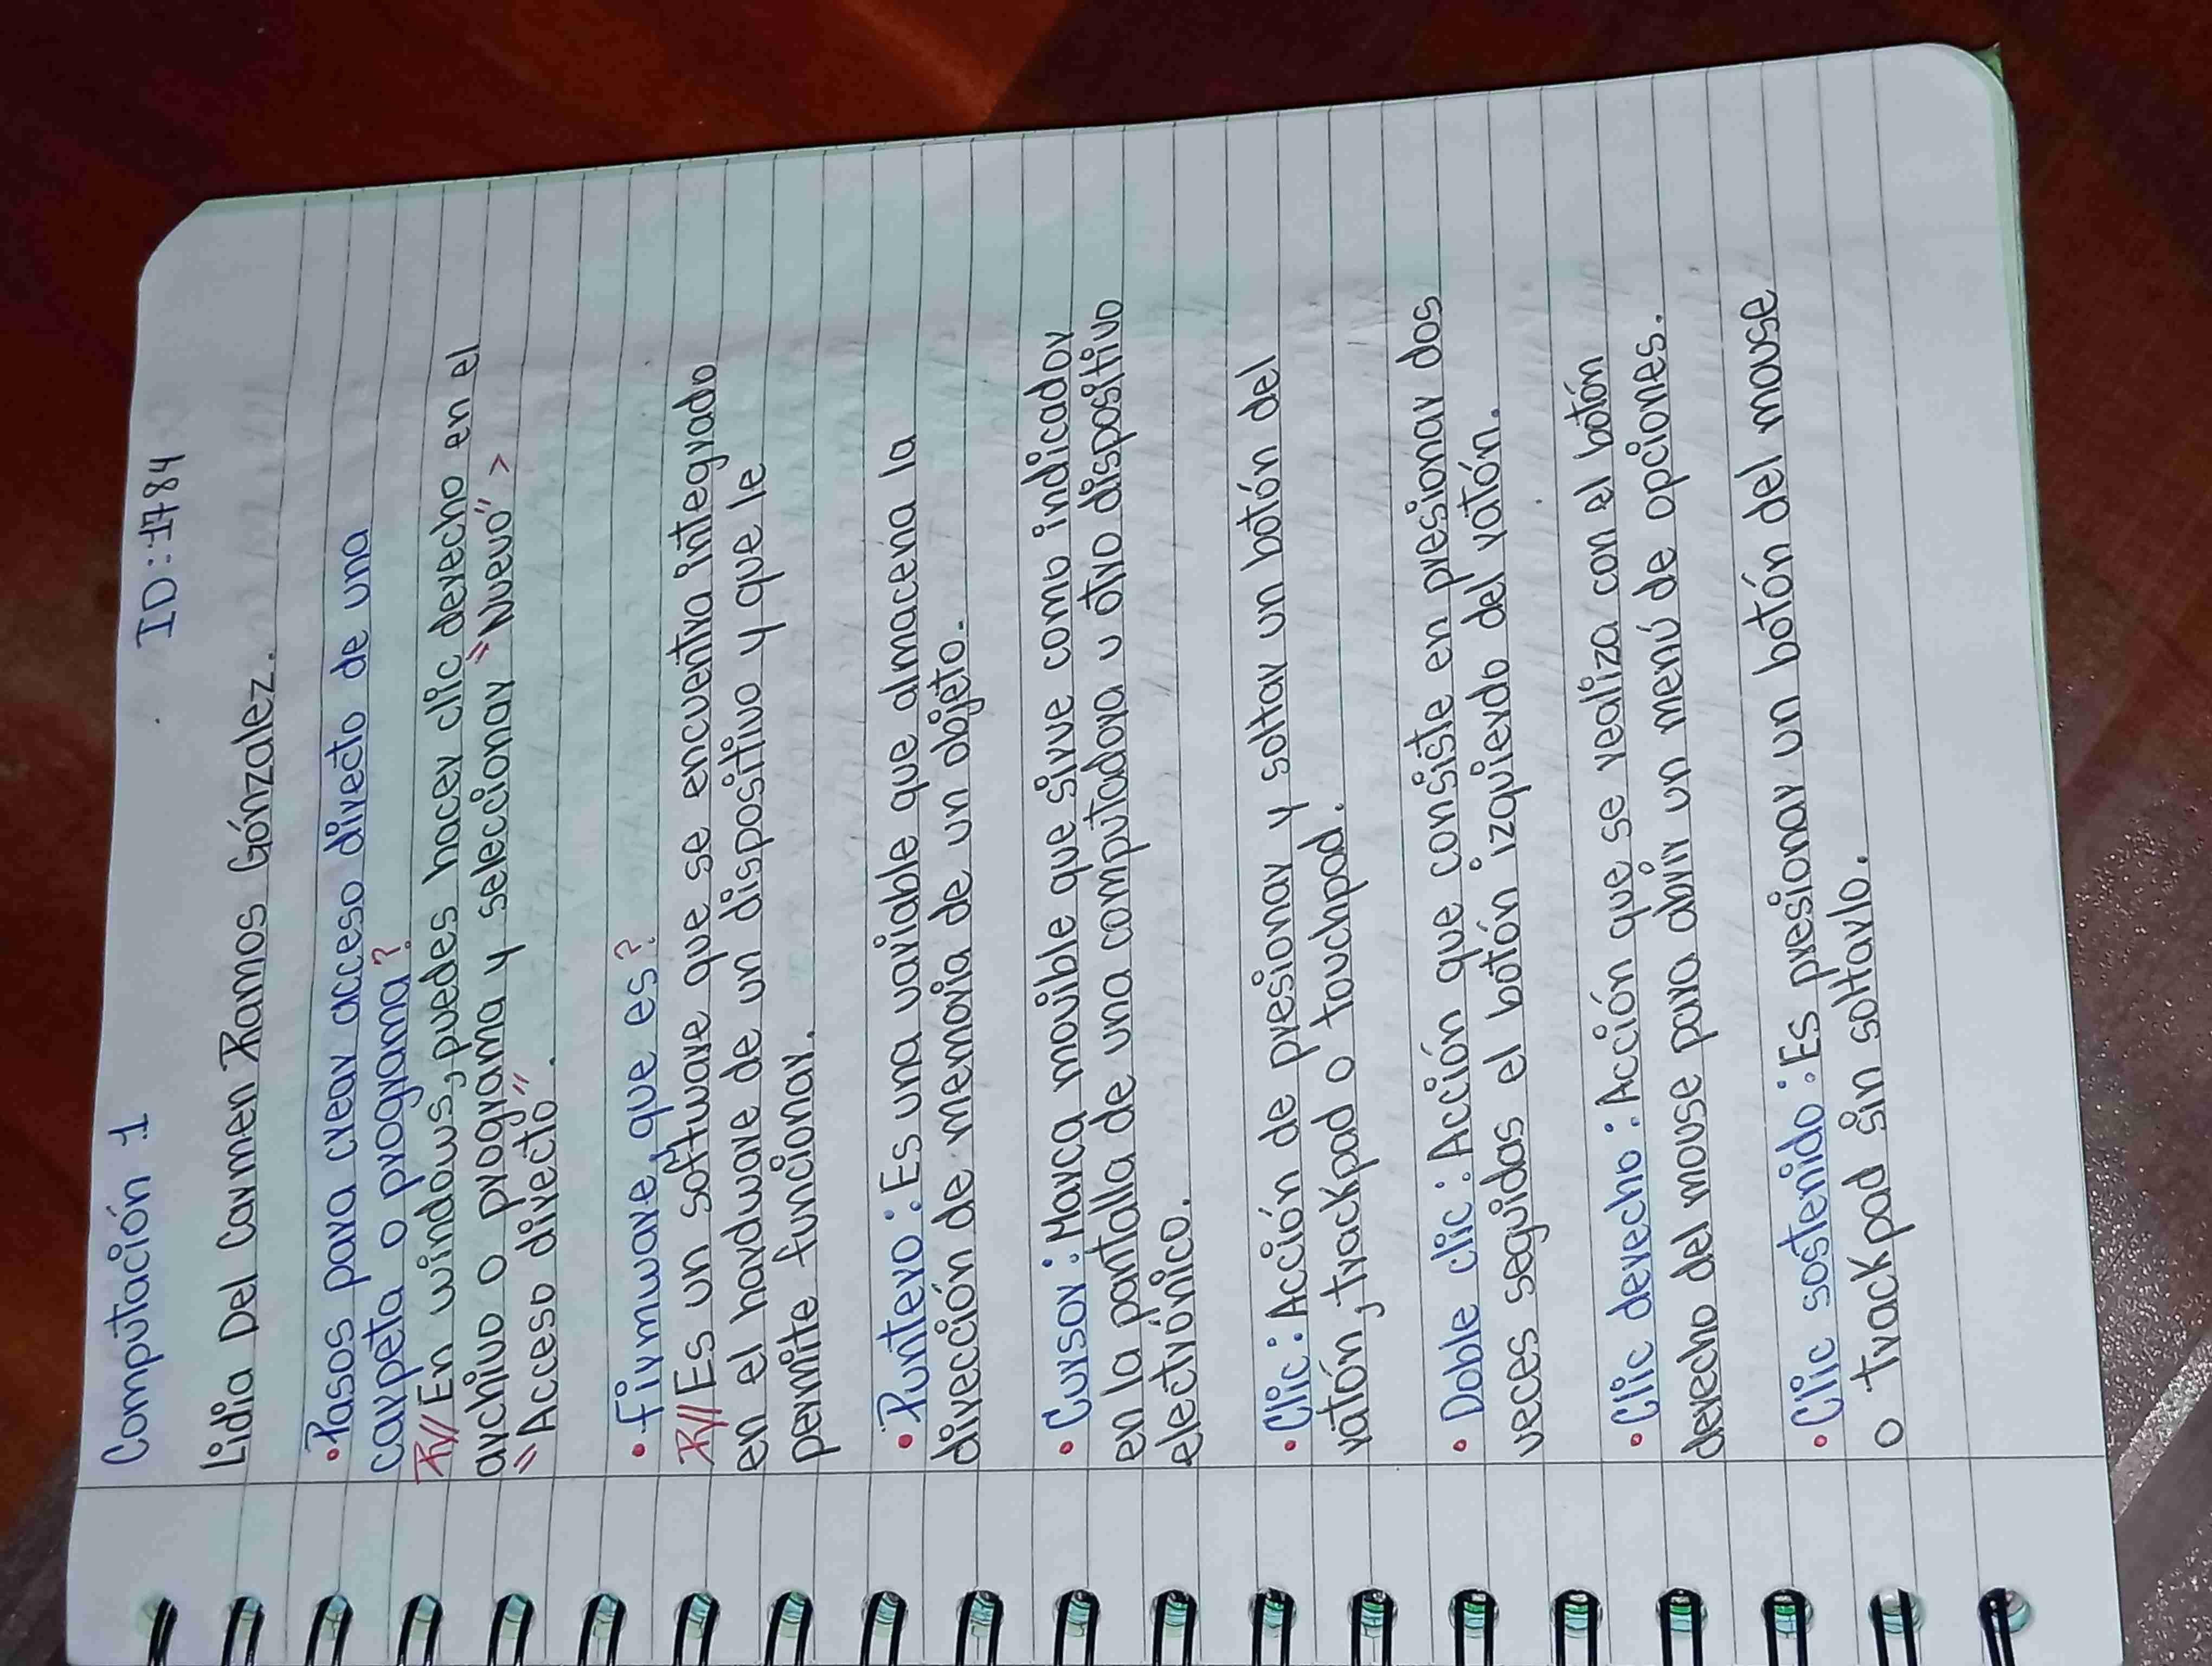 Computación 1 ID:1784
Lidia Del Carmen Ramos Gónzalez.
•Pasos para crear acceso directo de una
carpeta o programa?
R// En windows, puedes hacer clic derecho en el
archivo o programa y seleccionar "Nuevo" >
"Acceso directo".
• firmware, que es?
R// Es un software que se encuentra integrado
en el hardware de un dispositivo y que le
permite funcionar.
• Puntero: Es una variable que almacena la
dirección de memoria de un objeto.
• Cursor: Marca movible que sirve como indicador
en la pantalla de una computadora u otro dispositivo
electrónico.
• Clic: Acción de presionar y soltar un botón del
ratón, trackpad o touchpad.
• Doble clic: Acción que consiste en presionar dos
veces seguidas el botón izquierdo del ratón.
• Clic derecho: Acción que se realiza con el botón
derecho del mouse para abrir un menú de opciones.
• Clic sostenido: Es presionar un botón del mouse
o trackpad sin soltarlo.